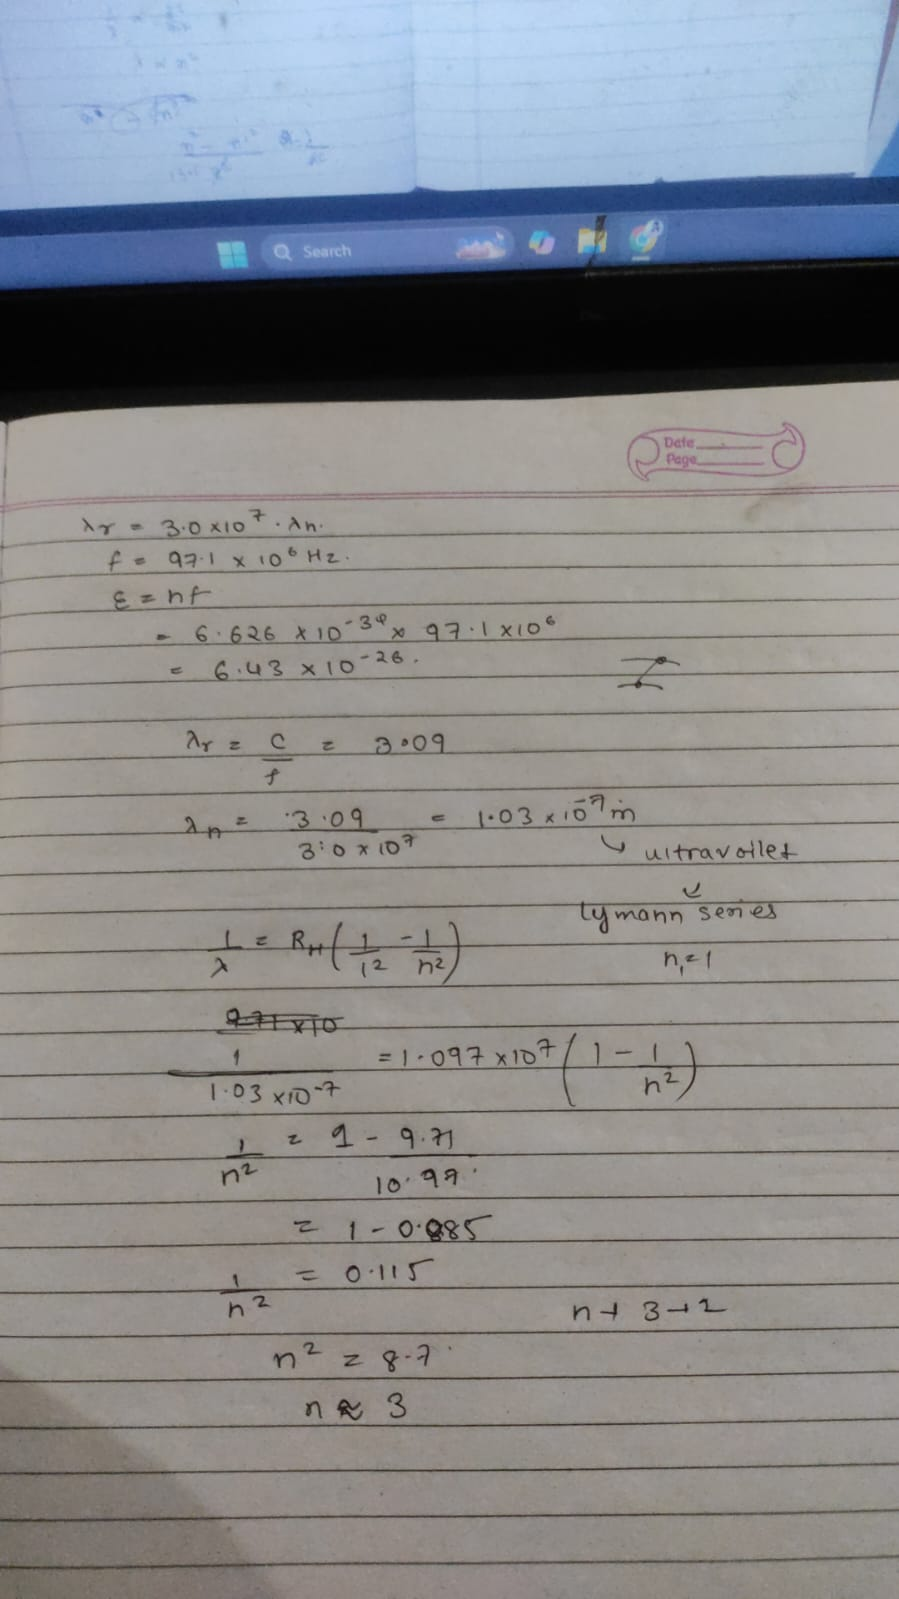 Search
Date
Page
λr = 3.0 x10⁷ . λn.
f = 97.1 x 10⁶ Hz.
ε = hf
= 6.626 x 10⁻³⁴ x 97.1 x10⁶
= 6.43 x 10⁻²⁶.
λr = c/f = 3.09
λn = 3.09/3.0 x 10⁷ = 1.03 x 10⁻⁷ m
↳ ultravoilet
↓
lymann series
1/λ = RH (1/1² - 1/n²)
n₁ = 1
9.71 x10
1/1.03 x10⁻⁷ = 1.097 x 10⁷ (1 - 1/n²)
1/n² = 1 - 9.71/10.97
= 1 - 0.885
1/n² = 0.115
n → 3 → 2
n² = 8.7
n ≈ 3